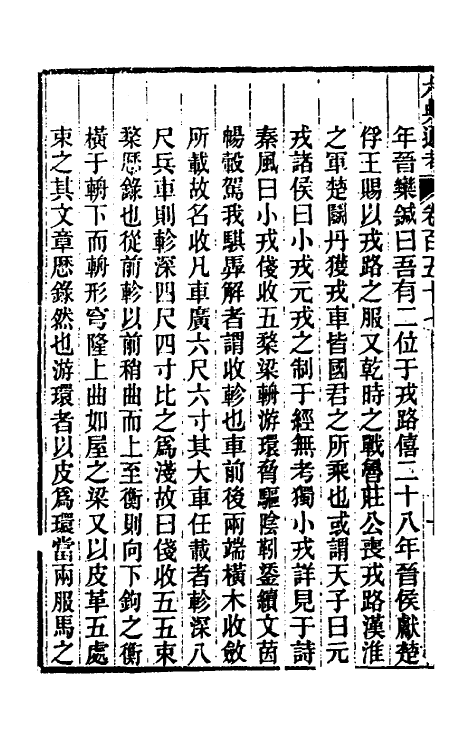 六典通考 卷百五十七
年晉欒鍼曰吾有二位于戎路僖二十八年晉侯獻楚
俘王賜以戎路之服又乾時之戰魯莊公喪戎路漢淮
之軍楚鬬丹獲戎車皆國君之所乘也或謂天子曰元
戎諸侯曰小戎元戎之制于經無考獨小戎詳見于詩
秦風曰小戎俴收五楘梁輈游環脅驅陰靷鋈續文茵
暢轂駕我騏馵解者謂收軫也車前後兩端橫木收斂
所載故名收凡車廣六尺六寸其大車任載者軫深八
尺兵車則軫深四尺四寸比之爲淺故曰俴收五五束
楘歴錄也從前軫以前稍曲而上至衡則向下鉤之衡
橫于輈下而輈形穹隆上曲如屋之梁又以皮革五處
束之其文章歴錄然也游環者以皮爲環當兩服馬之